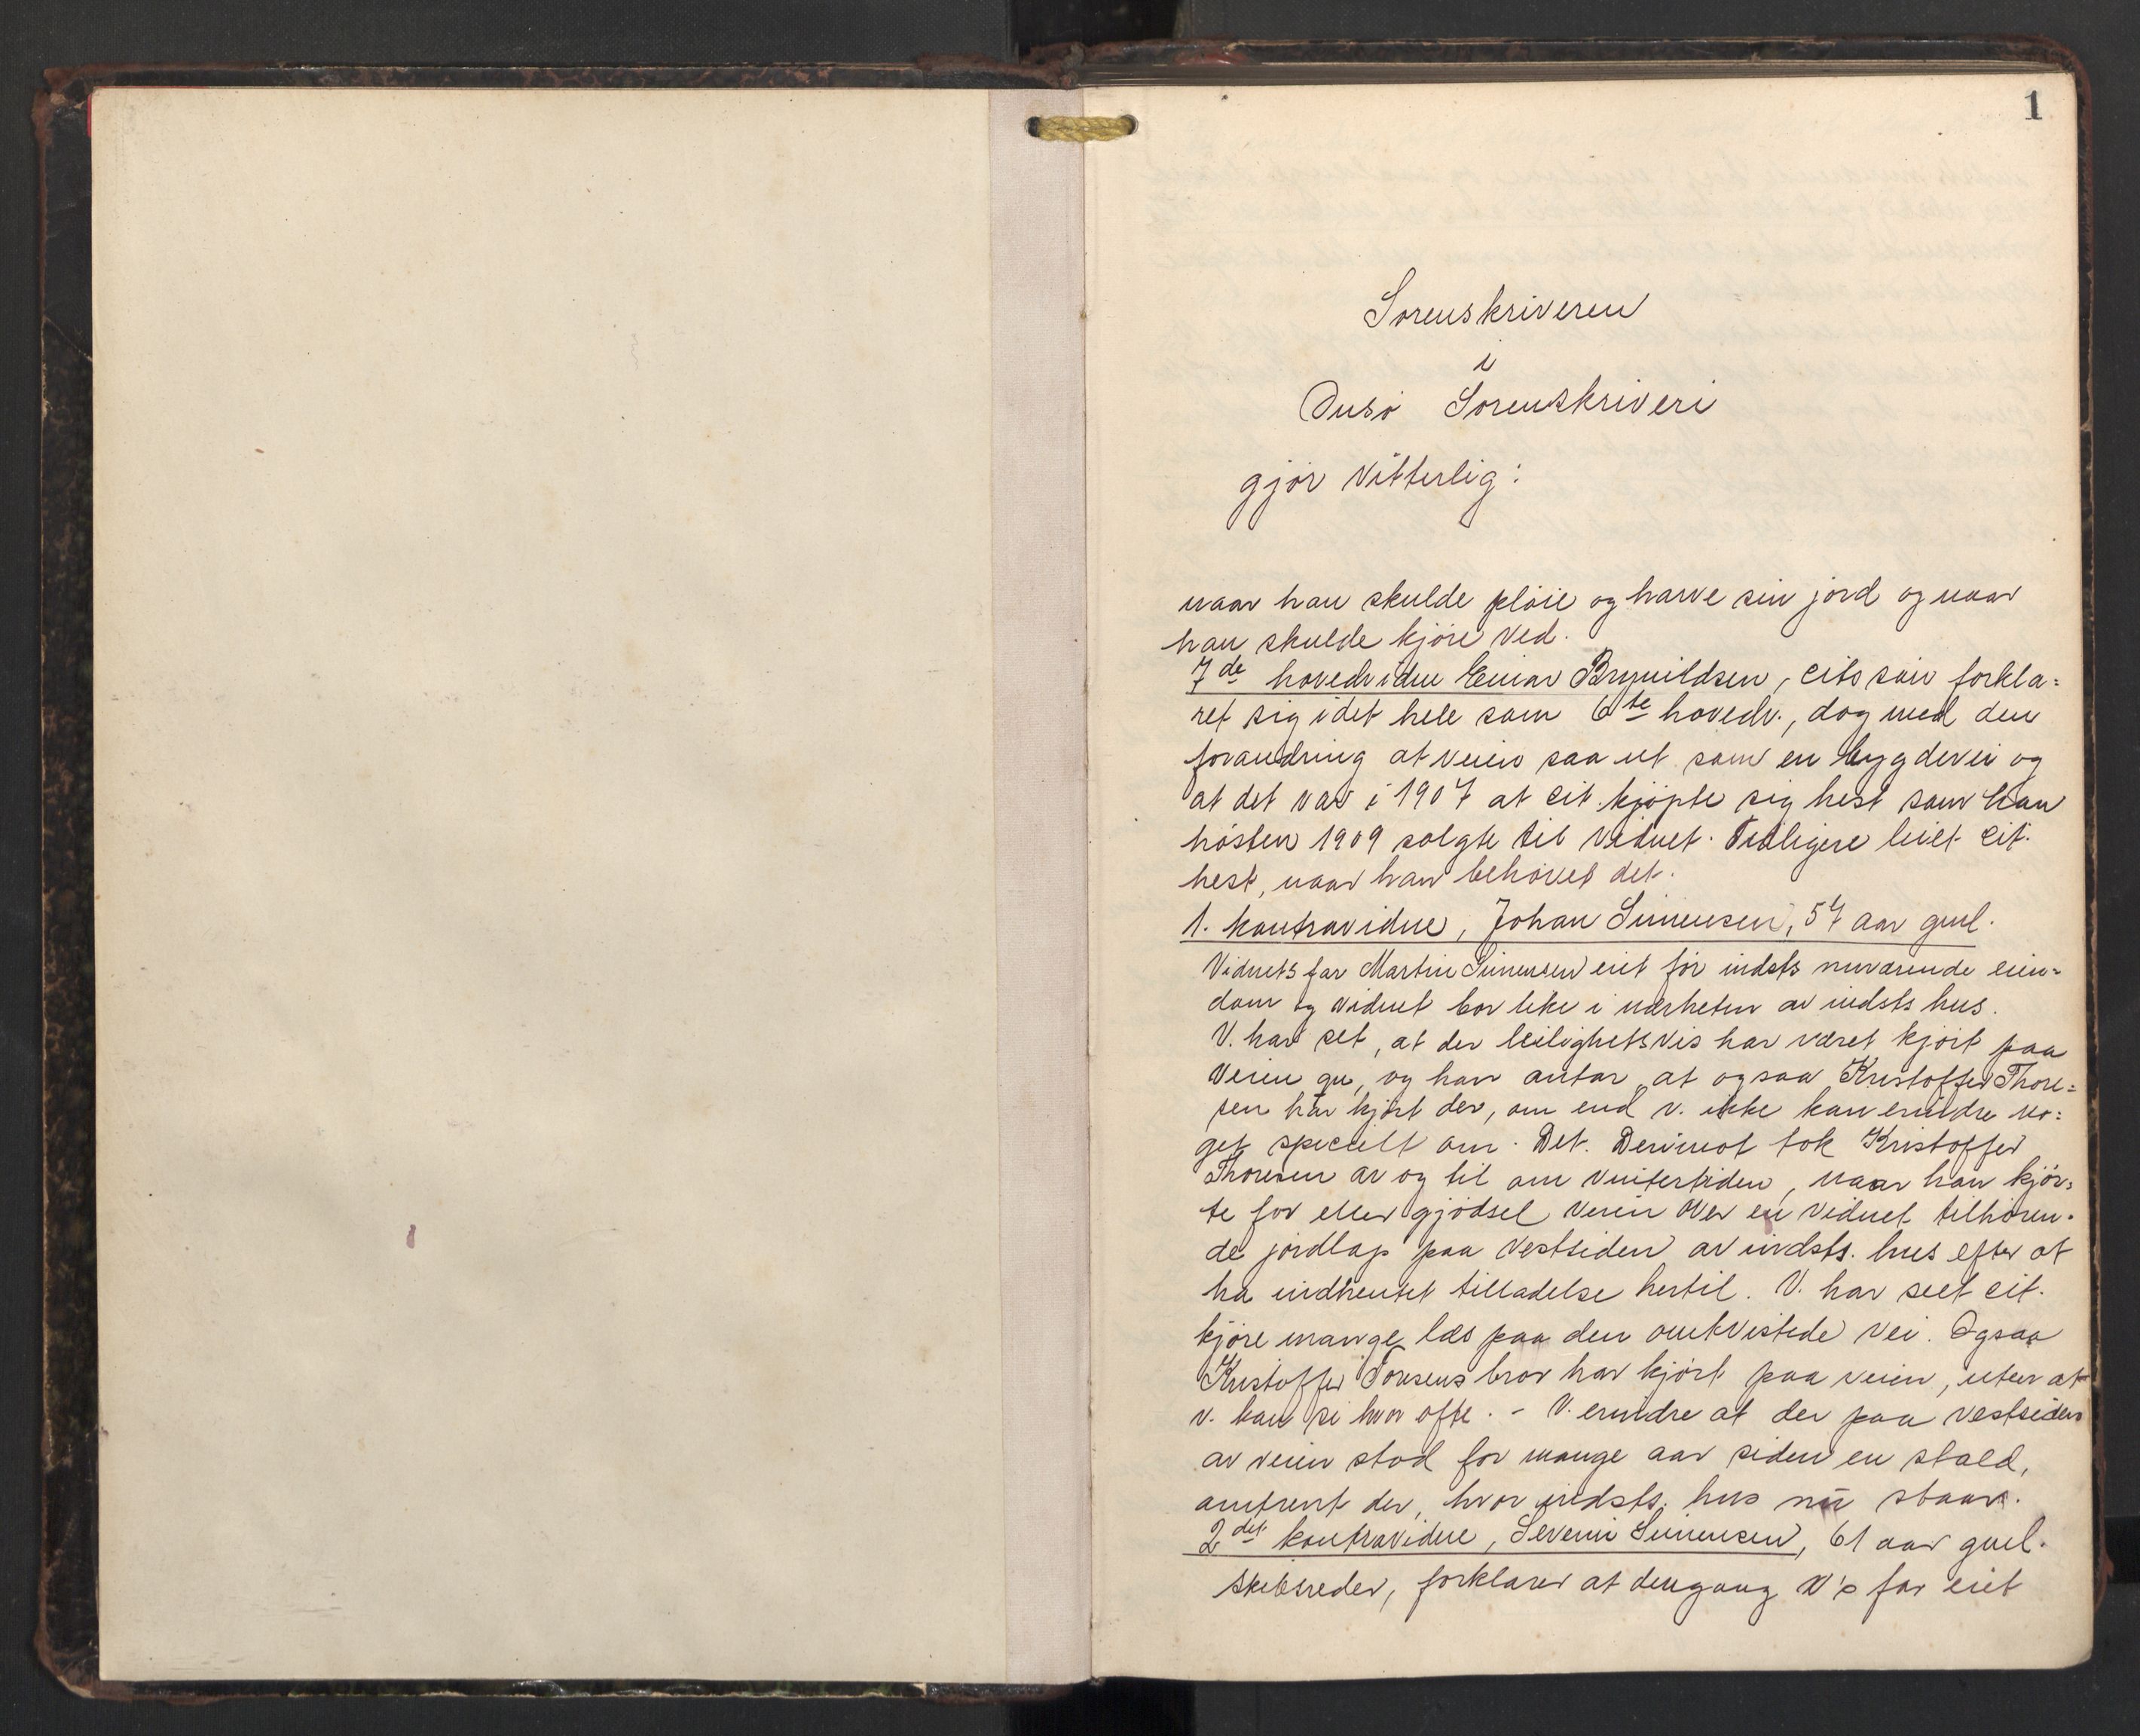 1
Sorenskriveren
i
Onsø Sorenskriveri
gjør vitterlig:
naar han skulde pløie og harve sin jord og naar
han skulde kjøre ved.
7de hovedvidne Einar Brynildsen, cits søn forkla=
ret sig i det hele som 6te hovedv., dog med den
forandring at veien saa ut som en bygdevei og
at det var i 1907 at cit. kjøpte sig hest som han
høsten 1909 solgte til vidnet. Tidligere leiet cit.
hest, naar han behøvet det.
1. kontravidne, Johan Simensen, 57 aar gml.
Vidnets far Martin Simensen eiet før indsts nuværende eien=
dom og vidnet bor like i nærheten av indsts hus.
V. har set, at der leilighetsvis har været kjørt paa
veien qu, og han antar at ogsaa Kristoffer Thore=
sen har kjørt der, om end v. ikke kan erindre no=
get specielt om. Det. Derimot tok Kristoffer
Thoresen av og til om vintertiden, naar han kjør=
te for eller gjødsel veien over en vidnet tilhøren=
de jordlap paa vestsiden av indsts. hus efter at
ha indhentet tilladelse hertil. V. har seet cit.
kjøre mange læs paa den omtvistede vei. Ogsaa
Kristoffer Toresens bror har kjørt paa veien, uten at
v. kan si hvor ofte. - V. erindre at der paa vestsiden
av veien stod for mange aar siden en stald,
omtrent der, hvor indsts. hus nu staar.
2det kontravidne, Severin Simensen, 61 aar gml.
skibsreder, forklarer at dengang V's far eiet